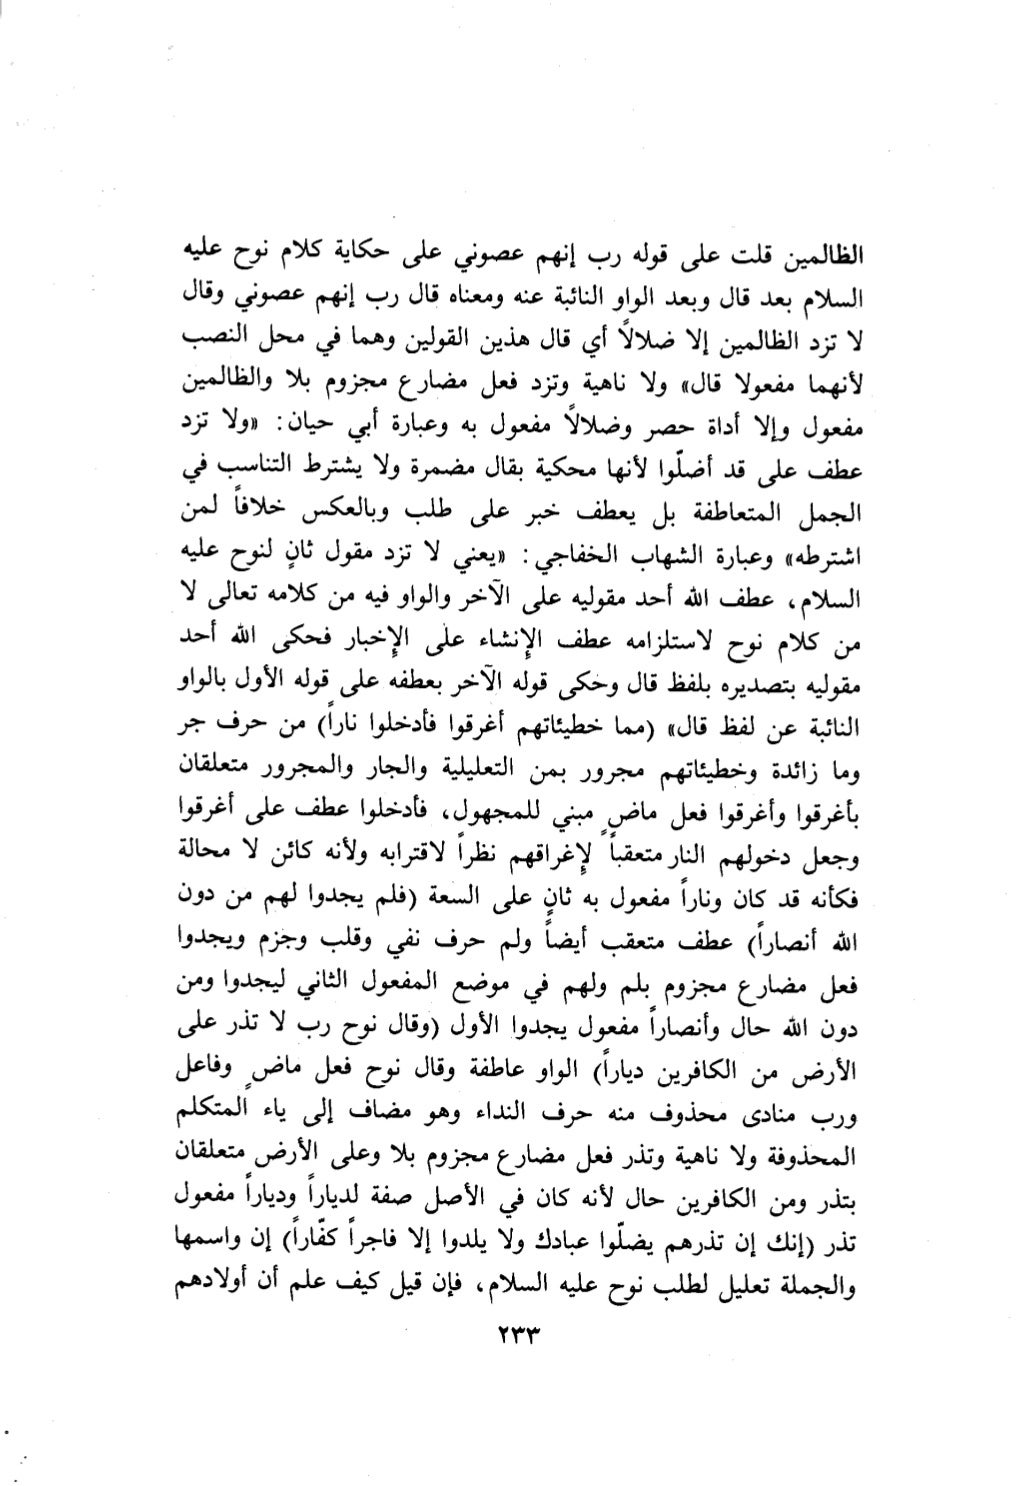 الظالمين قلت على قوله رب إنهم عصوني على حكاية كلام نوح عليه
السلام بعد قال وبعد الواو النائبة عنه ومعناه قال رب إنهم عصوني وقال
لا تزد الظالمين إلا ضلالًا أي قال هذين القولين وهما في محل النصب
لأنهما مفعولا قال» ولا ناهية وتزد فعل مضارع مجزوم بلا والظالمين
مفعول وإلا أداة حصر وضلالًا مفعول به وعبارة أبي حيان: «ولا تزد
عطف على قد أضلّوا لأنها محكية بقال مضمرة ولا يشترط التناسب في
الجمل المتعاطفة بل يعطف خبر على طلب وبالعكس خلافاً لمن
اشترطه» وعبارة الشهاب الخفاجي: «يعني لا تزد مقول ثانٍ لنوح عليه
السلام، عطف الله أحد مقوليه على الآخر والواو فيه من كلامه تعالى لا
من كلام نوح لاستلزامه عطف الإنشاء على الإخبار فحكى الله أحد
مقوليه بتصديره بلفظ قال وحكى قوله الآخر بعطفه على قوله الأول بالواو
النائبة عن لفظ قال» (مما خطيئاتهم أغرقوا فأدخلوا ناراً) من حرف جر
وما زائدة وخطيئاتهم مجرور بمن التعليلية والجار والمجرور متعلقان
بأغرقوا وأغرقوا فعل ماضٍ مبني للمجهول، فأدخلوا عطف على أغرقوا
وجعل دخولهم النار متعقباً لإغراقهم نظراً لاقترابه ولأنه كائن لا محالة
فكأنه قد كان وناراً مفعول به ثانٍ على السعة (فلم يجدوا لهم من دون
الله أنصاراً) عطف متعقب أيضاً ولم حرف نفي وقلب وجزم ويجدوا
فعل مضارع مجزوم بلم ولهم في موضع المفعول الثاني ليجدوا ومن
دون الله حال وأنصاراً مفعول يجدوا الأول (وقال نوح رب لا تذر على
الأرض من الكافرين دياراً) الواو عاطفة وقال نوح فعل ماضٍ وفاعل
ورب منادى محذوف منه حرف النداء وهو مضاف إلى ياء المتكلم
المحذوفة ولا ناهية وتذر فعل مضارع مجزوم بلا وعلى الأرض متعلقان
بتذر ومن الكافرين حال لأنه كان في الأصل صفة لدياراً ودياراً مفعول
تذر (إنك إن تذرهم يضلّوا عبادك ولا يلدوا إلا فاجراً كفّاراً) إن واسمها
والجملة تعليل لطلب نوح عليه السلام، فإن قيل كيف علم أن أولادهم
٢٣٣